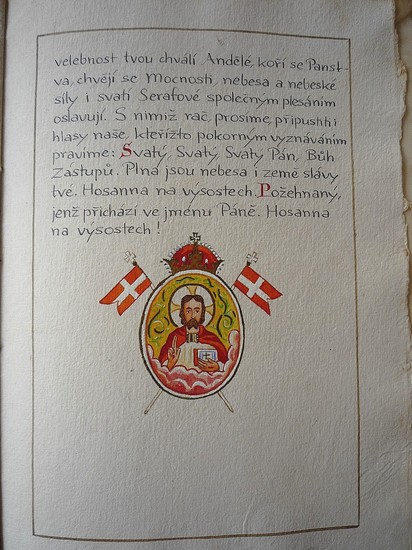 velebnost tvou chválí Andělé, koří se Panst-
va, chvějí se Mocnosti, nebesa a nebeské
síly i svatí Serafové společným plesáním
oslavují. S nimiž rač, prosíme, připustiti i
hlasy naše, kteřížto pokorným vyznáváním
pravíme: Svatý, Svatý Svatý Pán, Bůh
Zástupů. Plná jsou nebesa i země slávy
tvé. Hosanna na výsostech. Požehnaný,
jenž přichází ve jménu Páně. Hosanna
na výsostech!